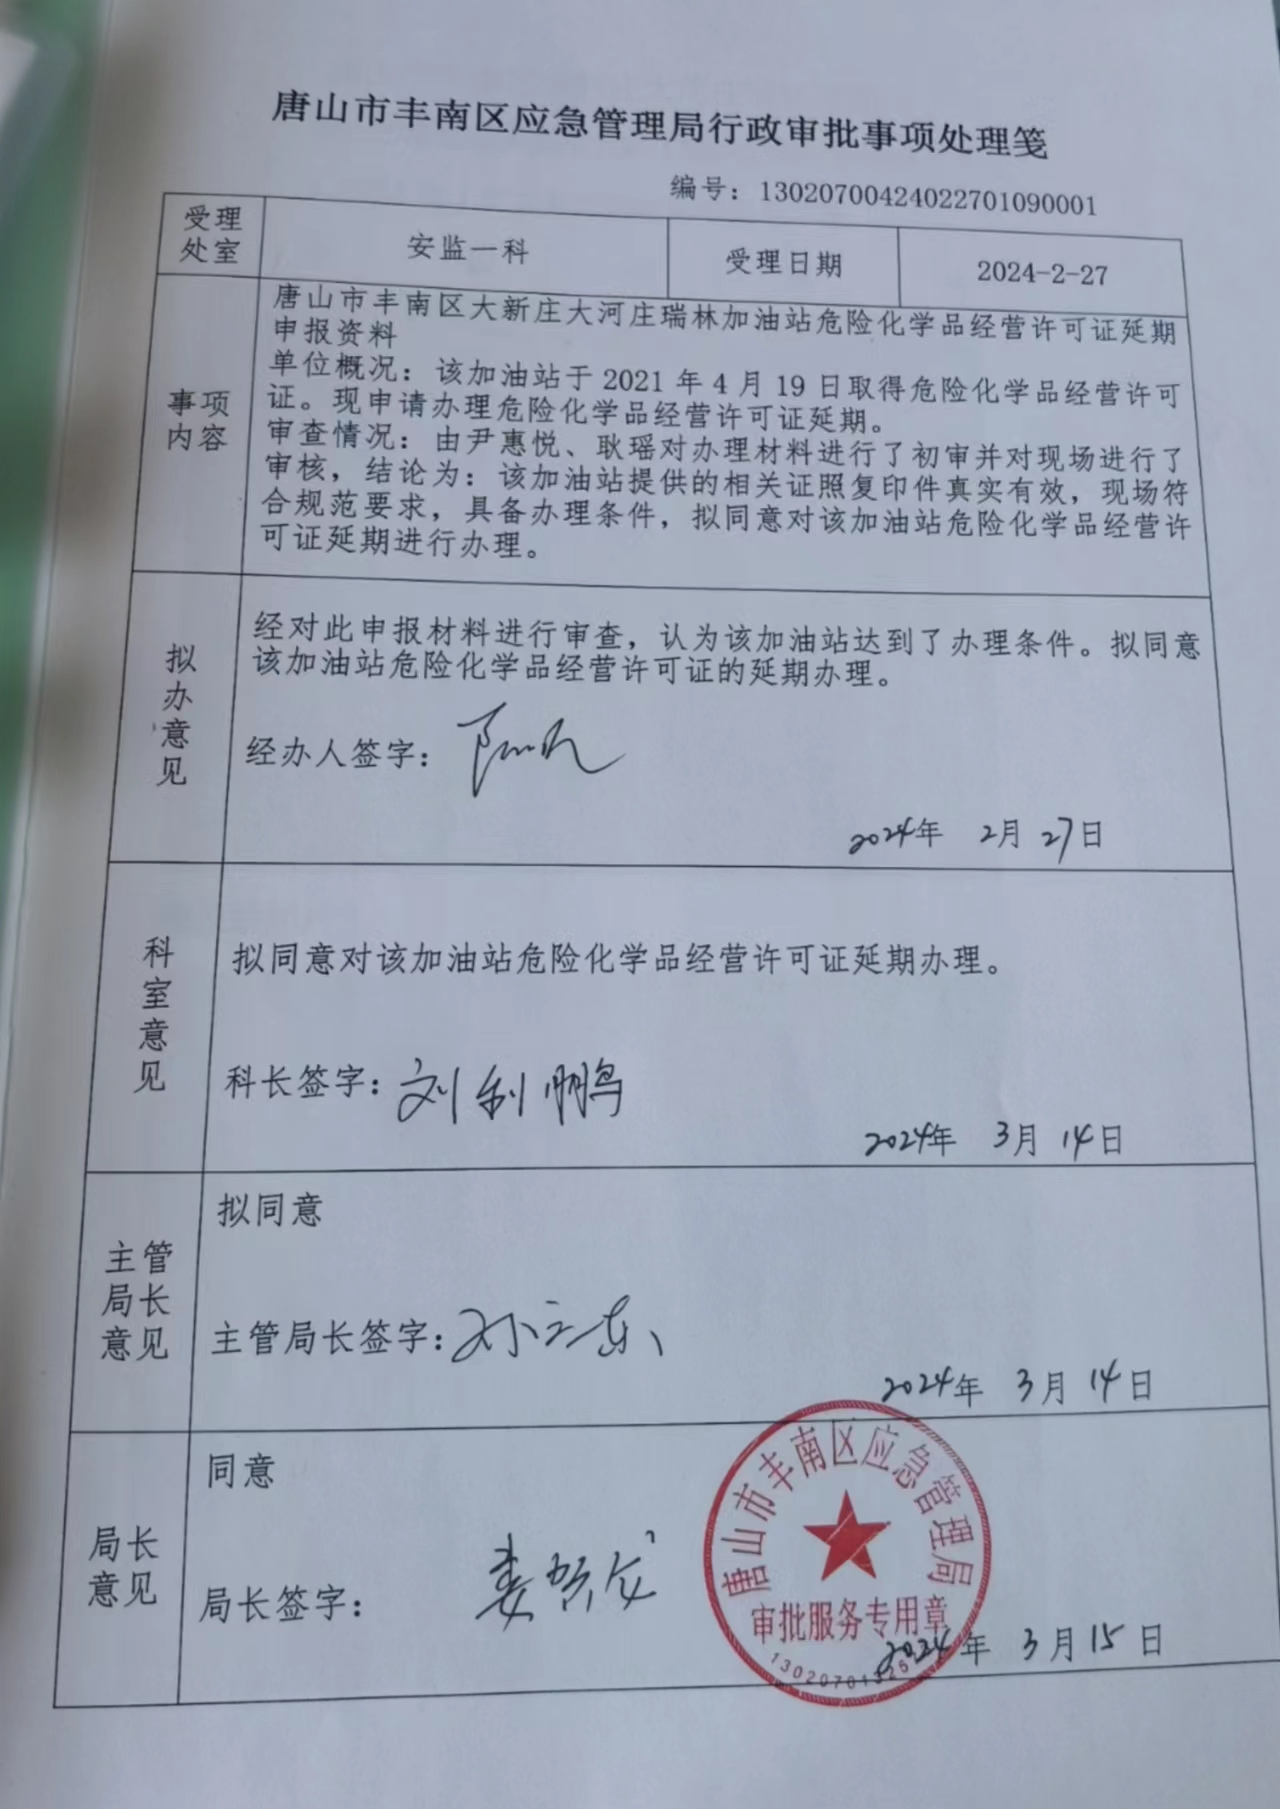 唐山市丰南区应急管理局行政审批事项处理笺
编号：13020700424022701090001
受理
处室
安监一科
受理日期
2024-2-27
事项
内容
唐山市丰南区大新庄大河庄瑞林加油站危险化学品经营许可证延期
申报资料
单位概况：该加油站于 2021 年 4 月 19 日取得危险化学品经营许可
证。现申请办理危险化学品经营许可证延期。
审查情况：由尹惠悦、耿瑶对办理材料进行了初审并对现场进行了
审核，结论为：该加油站提供的相关证照复印件真实有效，现场符
合规范要求，具备办理条件，拟同意对该加油站危险化学品经营许
可证延期进行办理。
拟
办
意
见
经对此申报材料进行审查，认为该加油站达到了办理条件。拟同意
该加油站危险化学品经营许可证的延期办理。
经办人签字：
2024年 2月 27日
科
室
意
见
拟同意对该加油站危险化学品经营许可证延期办理。
科长签字：刘利鹏
2024年 3月 14日
主管
局长
意见
拟同意
主管局长签字：孙立东
2024年 3月 14日
局长
意见
同意
局长签字：
唐山市丰南区应急管理局
审批服务专用章
2024年 3月 15日